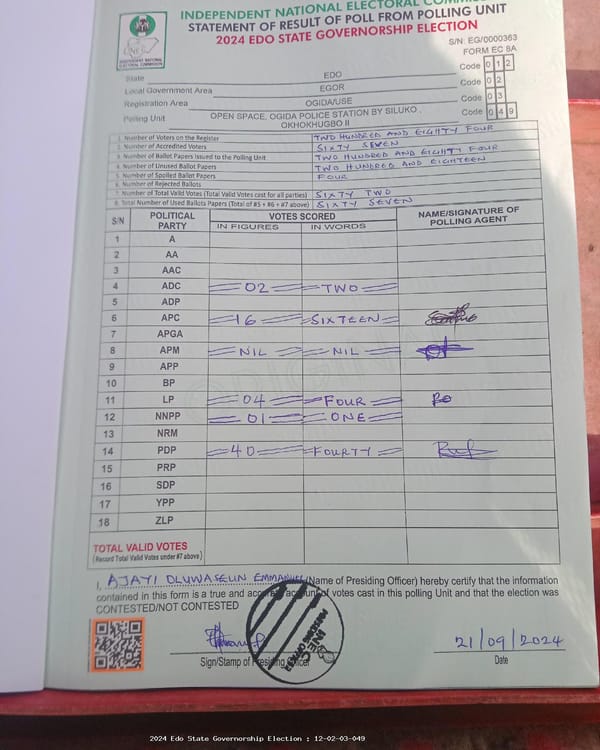 INDEPENDENT NATIONAL ELECTORAL COMMISSION
STATEMENT OF RESULT OF POLL FROM POLLING UNIT
2024 EDO STATE GOVERNORSHIP ELECTION
S/N: EG/0000363
FORM EC 8A
INDEPENDENT NATIONAL ELECTORAL COMMISSION
State EDO Code 0 1 2
Local Government Area EGOR Code 0 2
Registration Area OGIDA/USE Code 0 3
Polling Unit OPEN SPACE, OGIDA POLICE STATION BY SILUKO , OKHOKHUGBO II Code 0 4 9
1. Number of Voters on the Register TWO HUNDRED AND EIGHTY FOUR
2. Number of Accredited Voters SIXTY SEVEN
3. Number of Ballot Papers Issued to the Polling Unit TWO HUNDRED AND EIGHTY FOUR
4. Number of Unused Ballot Papers TWO HUNDRED AND EIGHTEEN
5. Number of Spoiled Ballot Papers FOUR
6. Number of Rejected Ballots
7. Number of Total Valid Votes (Total Valid Votes cast for all parties) SIXTY TWO
8. Total Number of Used Ballots Papers (Total of #5 + #6 + #7 above) SIXTY SEVEN
S/N POLITICAL PARTY VOTES SCORED NAME/SIGNATURE OF POLLING AGENT
IN FIGURES IN WORDS
1 A
2 AA
3 AAC
4 ADC 02 TWO
5 ADP
6 APC 16 SIXTEEN
7 APGA
8 APM NIL NIL
9 APP
10 BP
11 LP 04 FOUR
12 NNPP 01 ONE
13 NRM
14 PDP 40 FOURTY
15 PRP
16 SDP
17 YPP
18 ZLP
TOTAL VALID VOTES
(Record Total Valid Votes under #7 above)
I, AJAYI OLUWASEUN EMMANUEL (Name of Presiding Officer) hereby certify that the information
contained in this form is a true and accurate account of votes cast in this polling Unit and that the election was
CONTESTED/NOT CONTESTED
INEC
PRESIDING OFFICER
21/09/2024
Sign/Stamp of Presiding Officer Date
2024 Edo State Governorship Election : 12-02-03-049